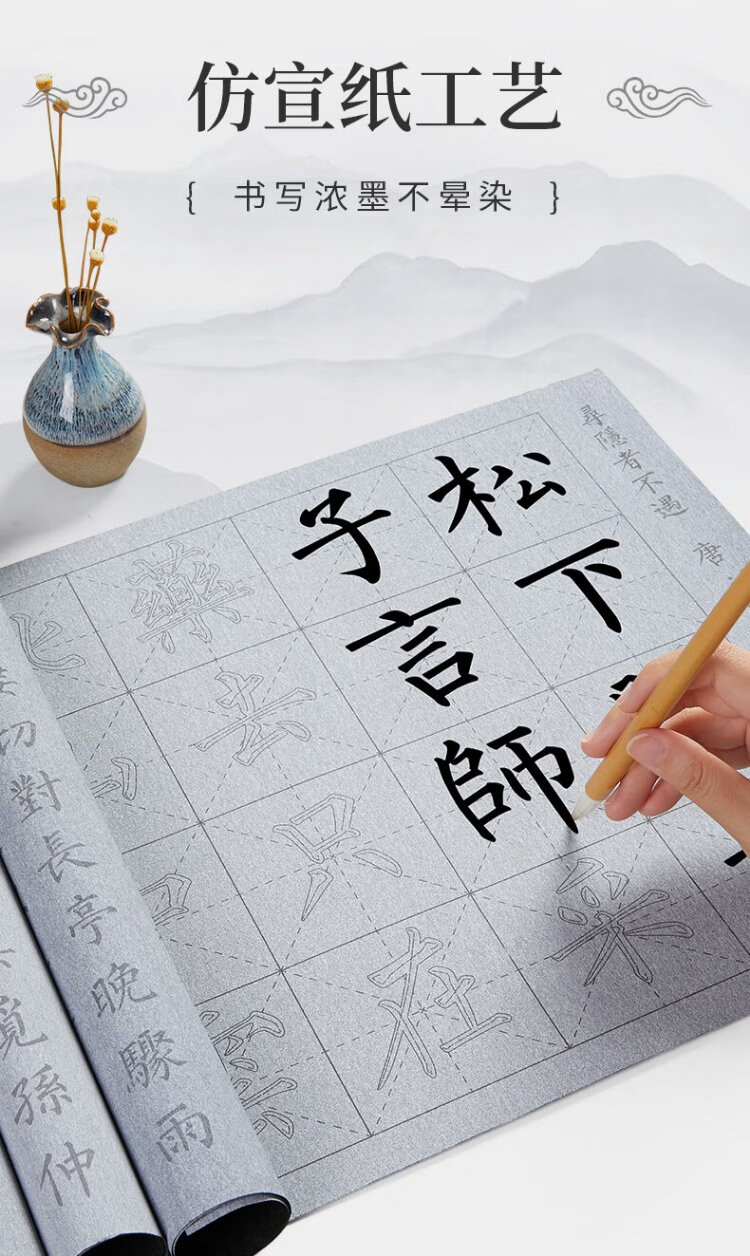 仿宣纸工艺
{ 书写浓墨不晕染 }
尋隱者不遇 唐
松下
子言師采
藥去只在
切對長亭晚驟雨
覓孫仲